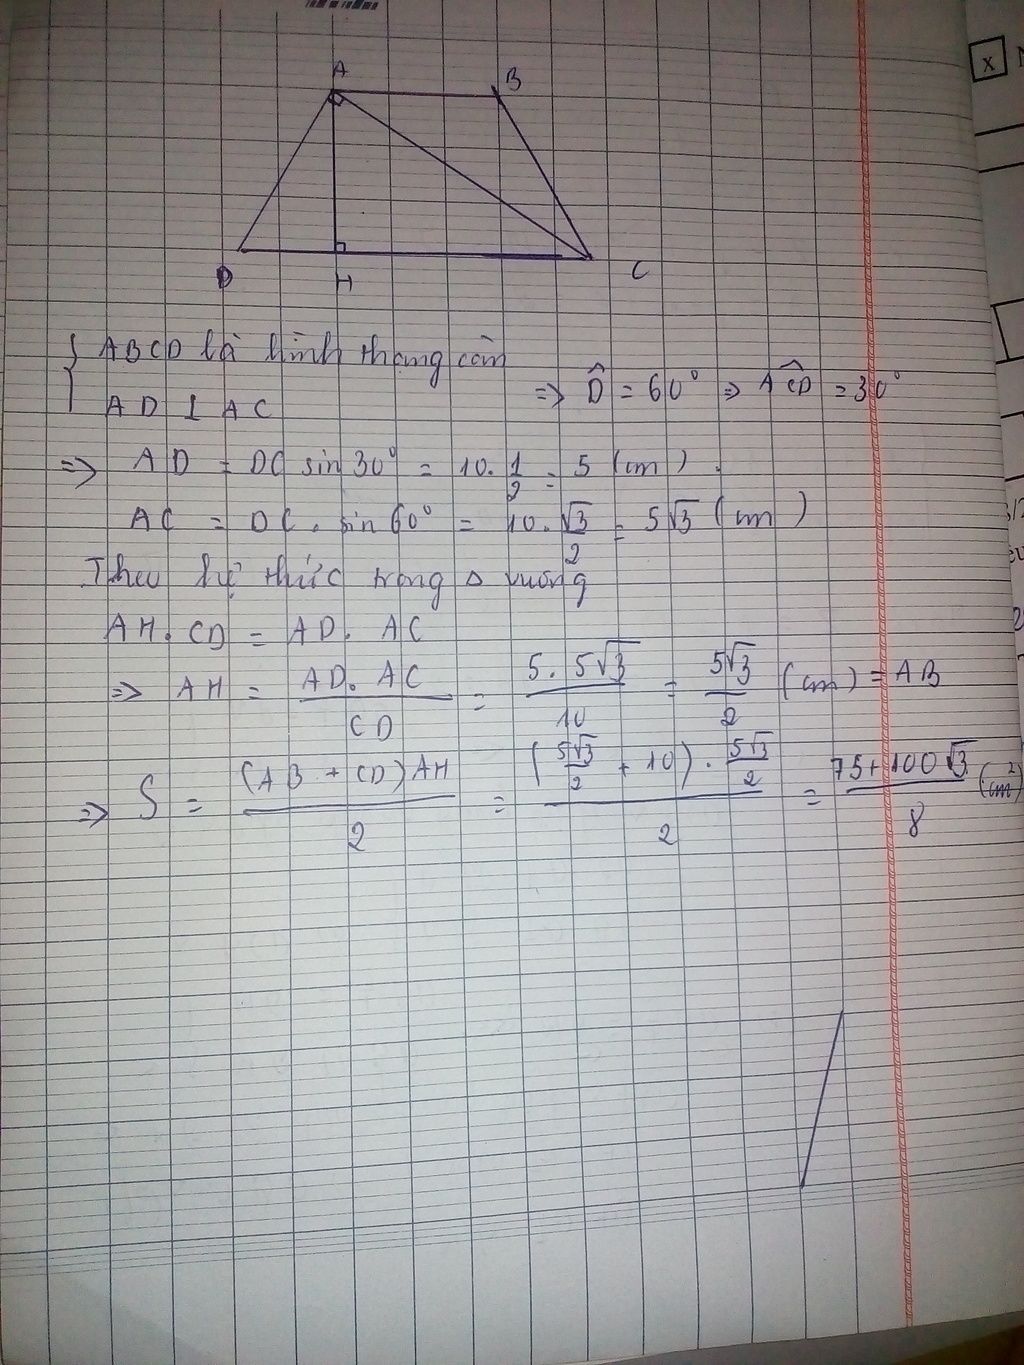 A
B
D
H
C
x
ABCD là hình thang cân
AD ⊥ AC
=> D̂ = 60° => ACD̂ = 30°
=> AD = DC sin 30° = 10. 1/2 = 5 (cm).
AC = DC. sin 60° = 10. √3/2 = 5√3 (cm)
Theo hệ thức trong Δ vuông
AH. CD = AD. AC
=> AH = AD. AC / CD = 5. 5√3 / 10 = 5√3/2 (cm) = AB
=> S = (AB + CD) AH / 2 = (5√3/2 + 10). 5√3/2 / 2 = 75+100√3 / 8 (cm²)